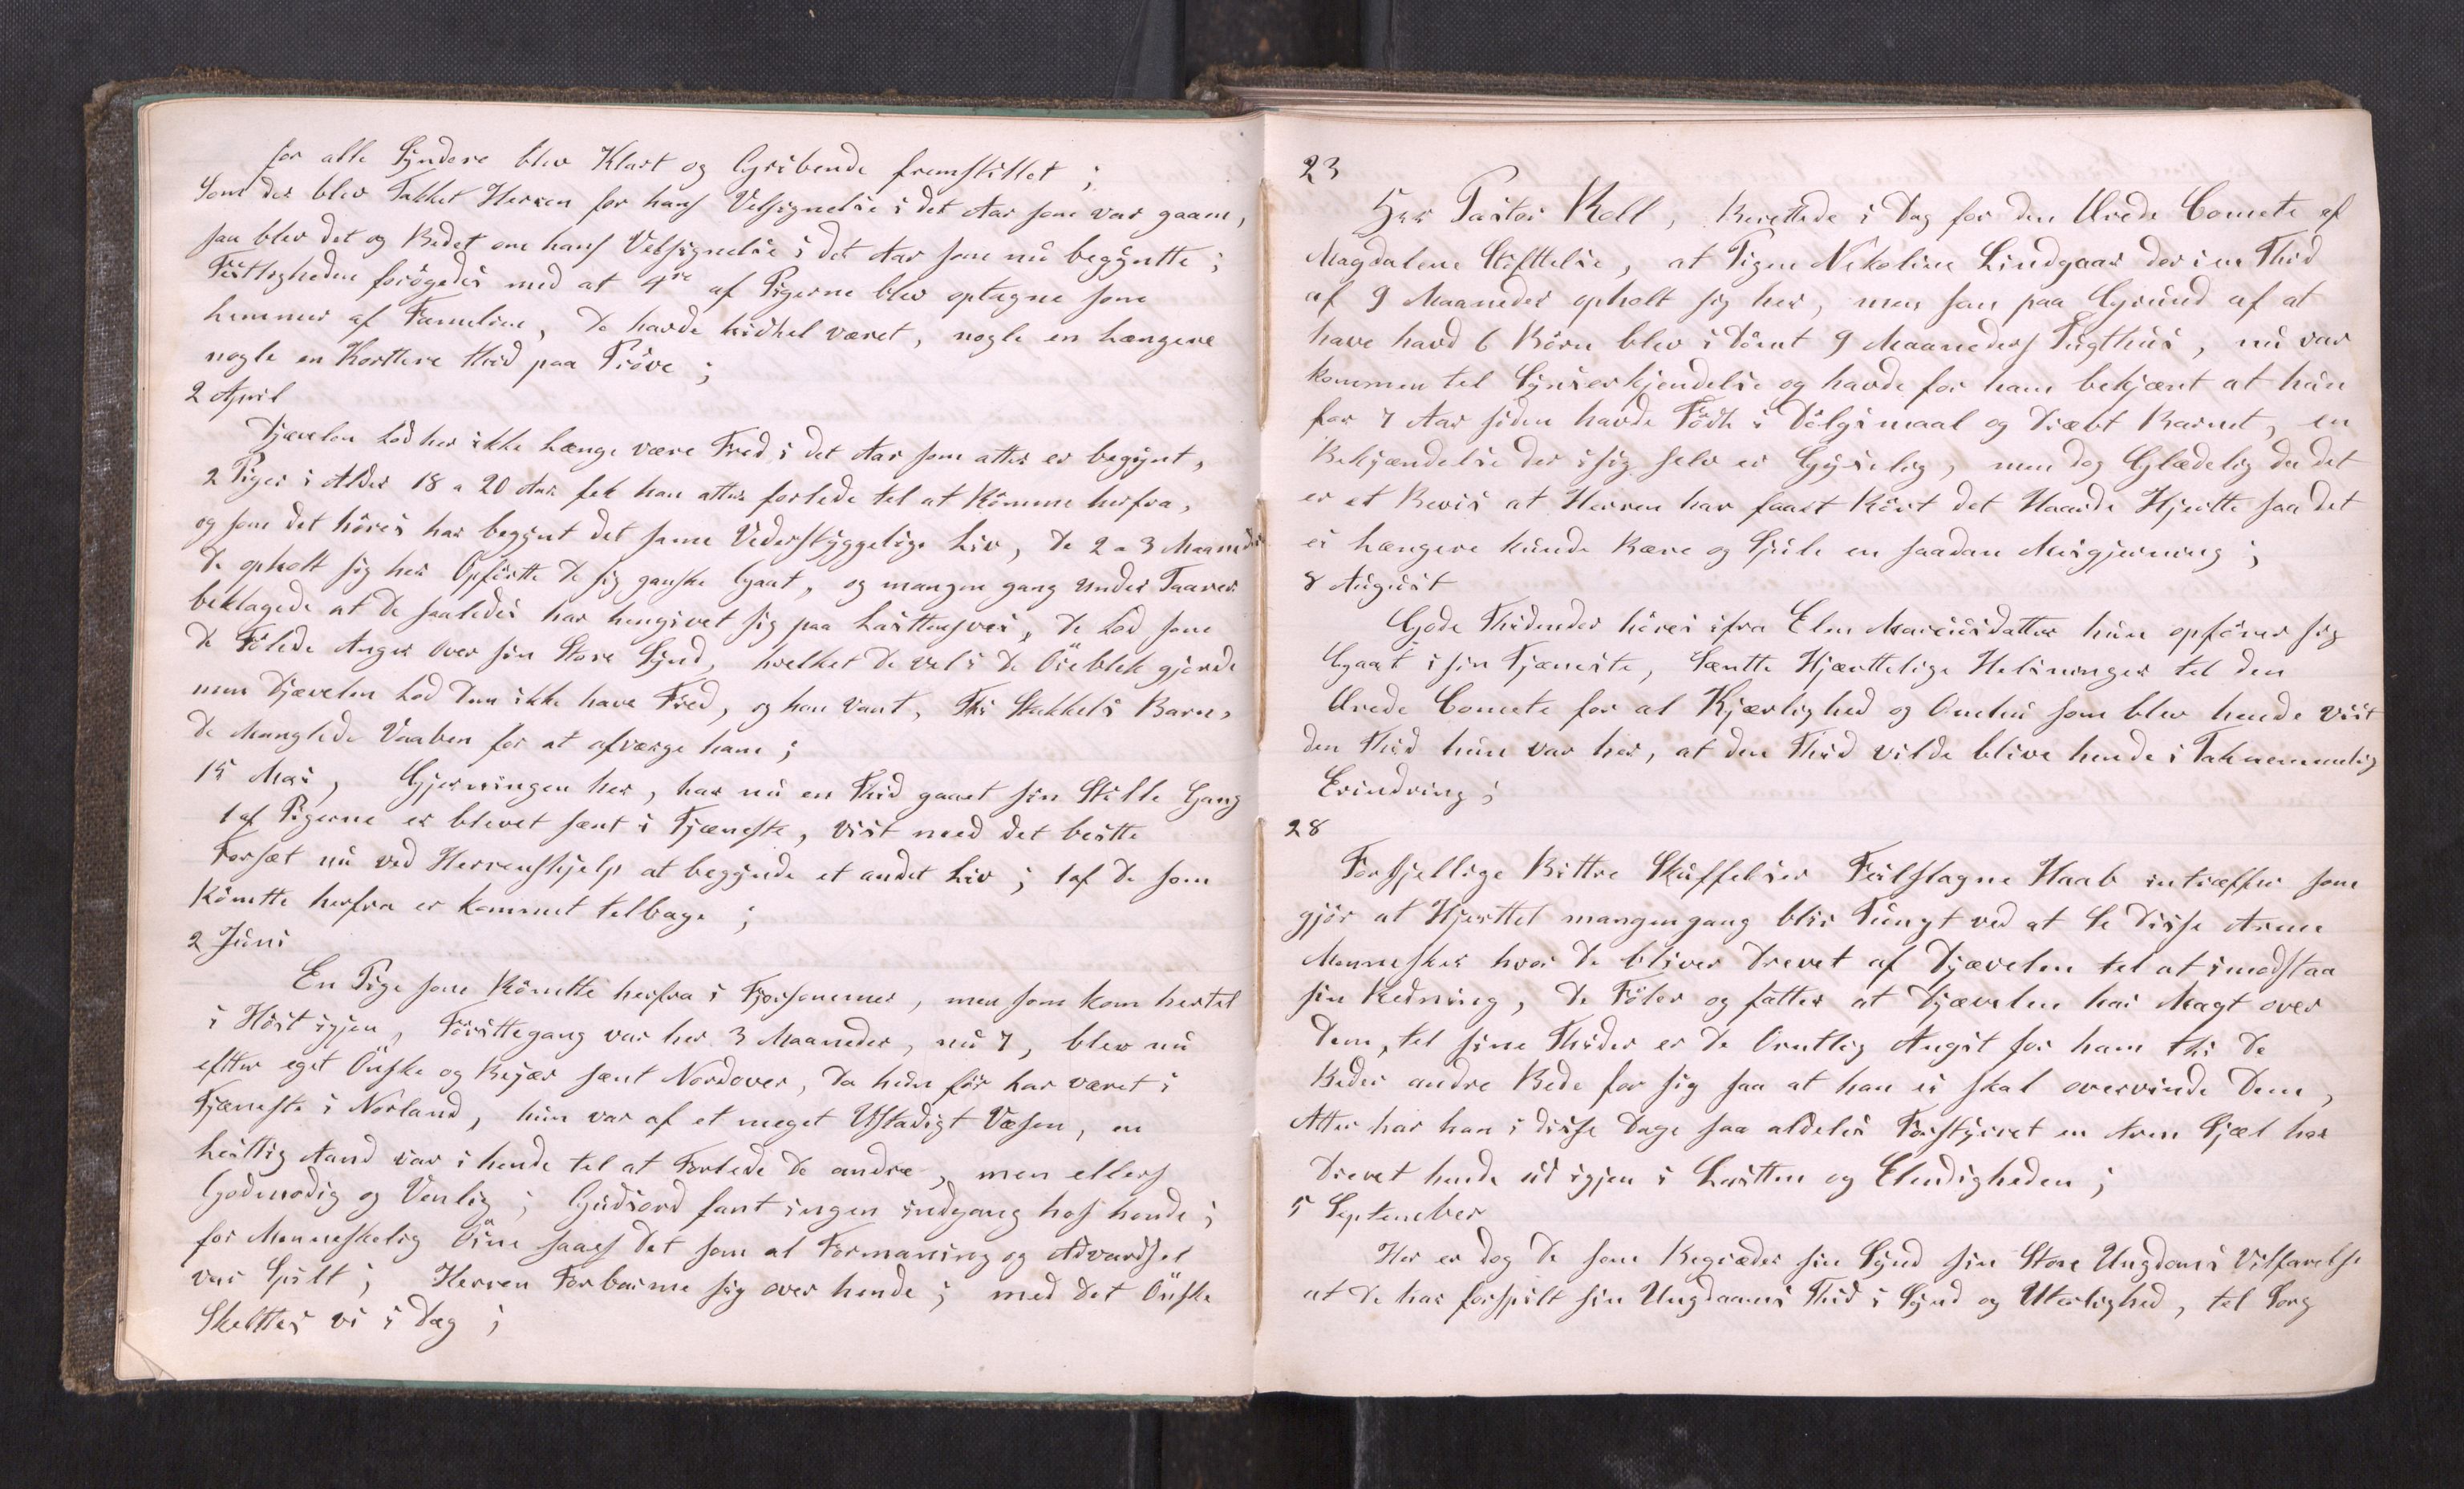 for alle Syndere blev Klart og Gribende fremstillet ;
Som der blev Takket Herren for hans Velsignelse i det Aar som var gaaen,
saa blev det og Bedet om hans Velsignelse i det Aar som nu begyntte ;
Festligheden forögedes med at 4re af Pigerne blev optagne som
lemmer af Familien, De havde tidhel været, nogle en Længere
nogle en Korttere thid paa Pröve ;
2 April
Djævelen Lod her ikke Længe være Fred i det Aar som atter er begynt,
2 Piger i Alder 18 a 20 Aar fek han atter forlede tel at Römme herfra,
og som det höres har begynt det samme Vederstyggelige Liv, De 2 a 3 Maaneder
De opholt sig her Opförtte De sig ganske Gaat, og mangen gang under Taarer
beklagede at De saaledes har hengivet sig paa Lasttensvei, De Lod som
De Fölede Anger Over sin Store Synd, hvelket De vel i De Öieblek gjorde
men Djævelen Lod Dem ikke have Fred, og han vant, Thi Stakkels Barn,
De Manglede Vaaben for at afværge ham ;
15 Mai, Gjerningen her, har nu en Thid gaaet sin Stille Gang
1 af Pigerne er blevet sent i Tjæneste, vist med det bestte
Forsæt nu ved Herrenshjelp at begynde et andet Liv ; 1 af De som
Römtte herfra er kommet telbage ;
2 Juni
En Pige som Römtte herfra i Fjorsommer, men som kom hertel
i Höst igjen, Försttegang var her 3 Maaneder, nu 7, blev nu
eftter eget Önske og Begjær sent Nordover, Da hun för har været i
Tjæneste i Norland, hun var af et meget Ustadigt Væsen, en
Lesttig Aand var i hende tel at Forlede De andre, men ellers
Godmodig og Venlig ; Gudsord fant ingen indgang hos hende ;
for Menneskelig Öine saaes Det som al Formaning og Advardsel
var Spilt ; Herren Forbarme sig over hende ; med Det Önske
Skelttes vi i Dag ;
23
Her Pastor Roll, Berettede i Dag for den Ærede Comete af
Magdalene Stifttelse, at Pigen Nikoline Lindgaar der i en Thid
af 9 Maaneder opholt sig her, men som paa Grund af at
have havd 6 Börn blev i Dömt 9 Maaneders Tugthus, nu var
kommen tel Synserkjendelse og havde for ham bekjænt at hun
for 7 Aar siden havde Födt i Dölgsmaal og Dræbt Barnet, en
Bekjændelse Der i sig selv er Gyselig, men dog Glædelig da det
er et Bevis at Herren har faaet Rört det Haarde Hjertte saa det
ei Længere kunde Bære og Skjule en saadan Misgjerning ;
8 August
Gode Thidender höres ifra Elen Mariusdatter hun opförer sig
Gaat i sin Tjæneste, Sentte Hjærttelige Helsninger tel den
Ærede Comete for al Kjærlighed og Omhu som blev hende vist
den Thid hun var her, at den Thid vilde blive hende i Taknemmelig
Erindring ;
28
Forskjellige Bittre Skuffelser Feilslagne Haab intræffer som
gjör at Hjerttet mangengang blir Tungt ved at Se Disse Arme
Mennesker hvor De bliver Drevet af Djævelen tel at imodstaa
sin Redning, De Föler og fatter at Djævelen har Magt over
Dem, tel sine Thider er De Orntlig Angst for ham thi De
Beder andre Bede for sig saa at han ei skal overvinde Dem,
Atter har han i disse Dage saa aldeles Forstyrret en Arm Sjæl har
Drevet hende ud igjen i Lastten og Elendigheden ;
5 September
Her er dog De som Begræder sin Synd sin Store Ungdoms Vilfarelse
at De har forspilt sin Ungdaams Thid i Synd og Uterlighed, tel Sorg